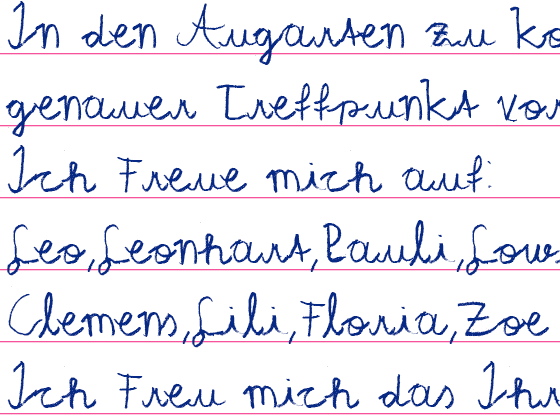 In den Augarten zu ko
genauer Treffpunkt vor
Ich Freue mich auf:
Leo, Leonhart, Pauli, Low
Clemens, Lili, Floria, Zoe
Ich Freu mich das Ihr